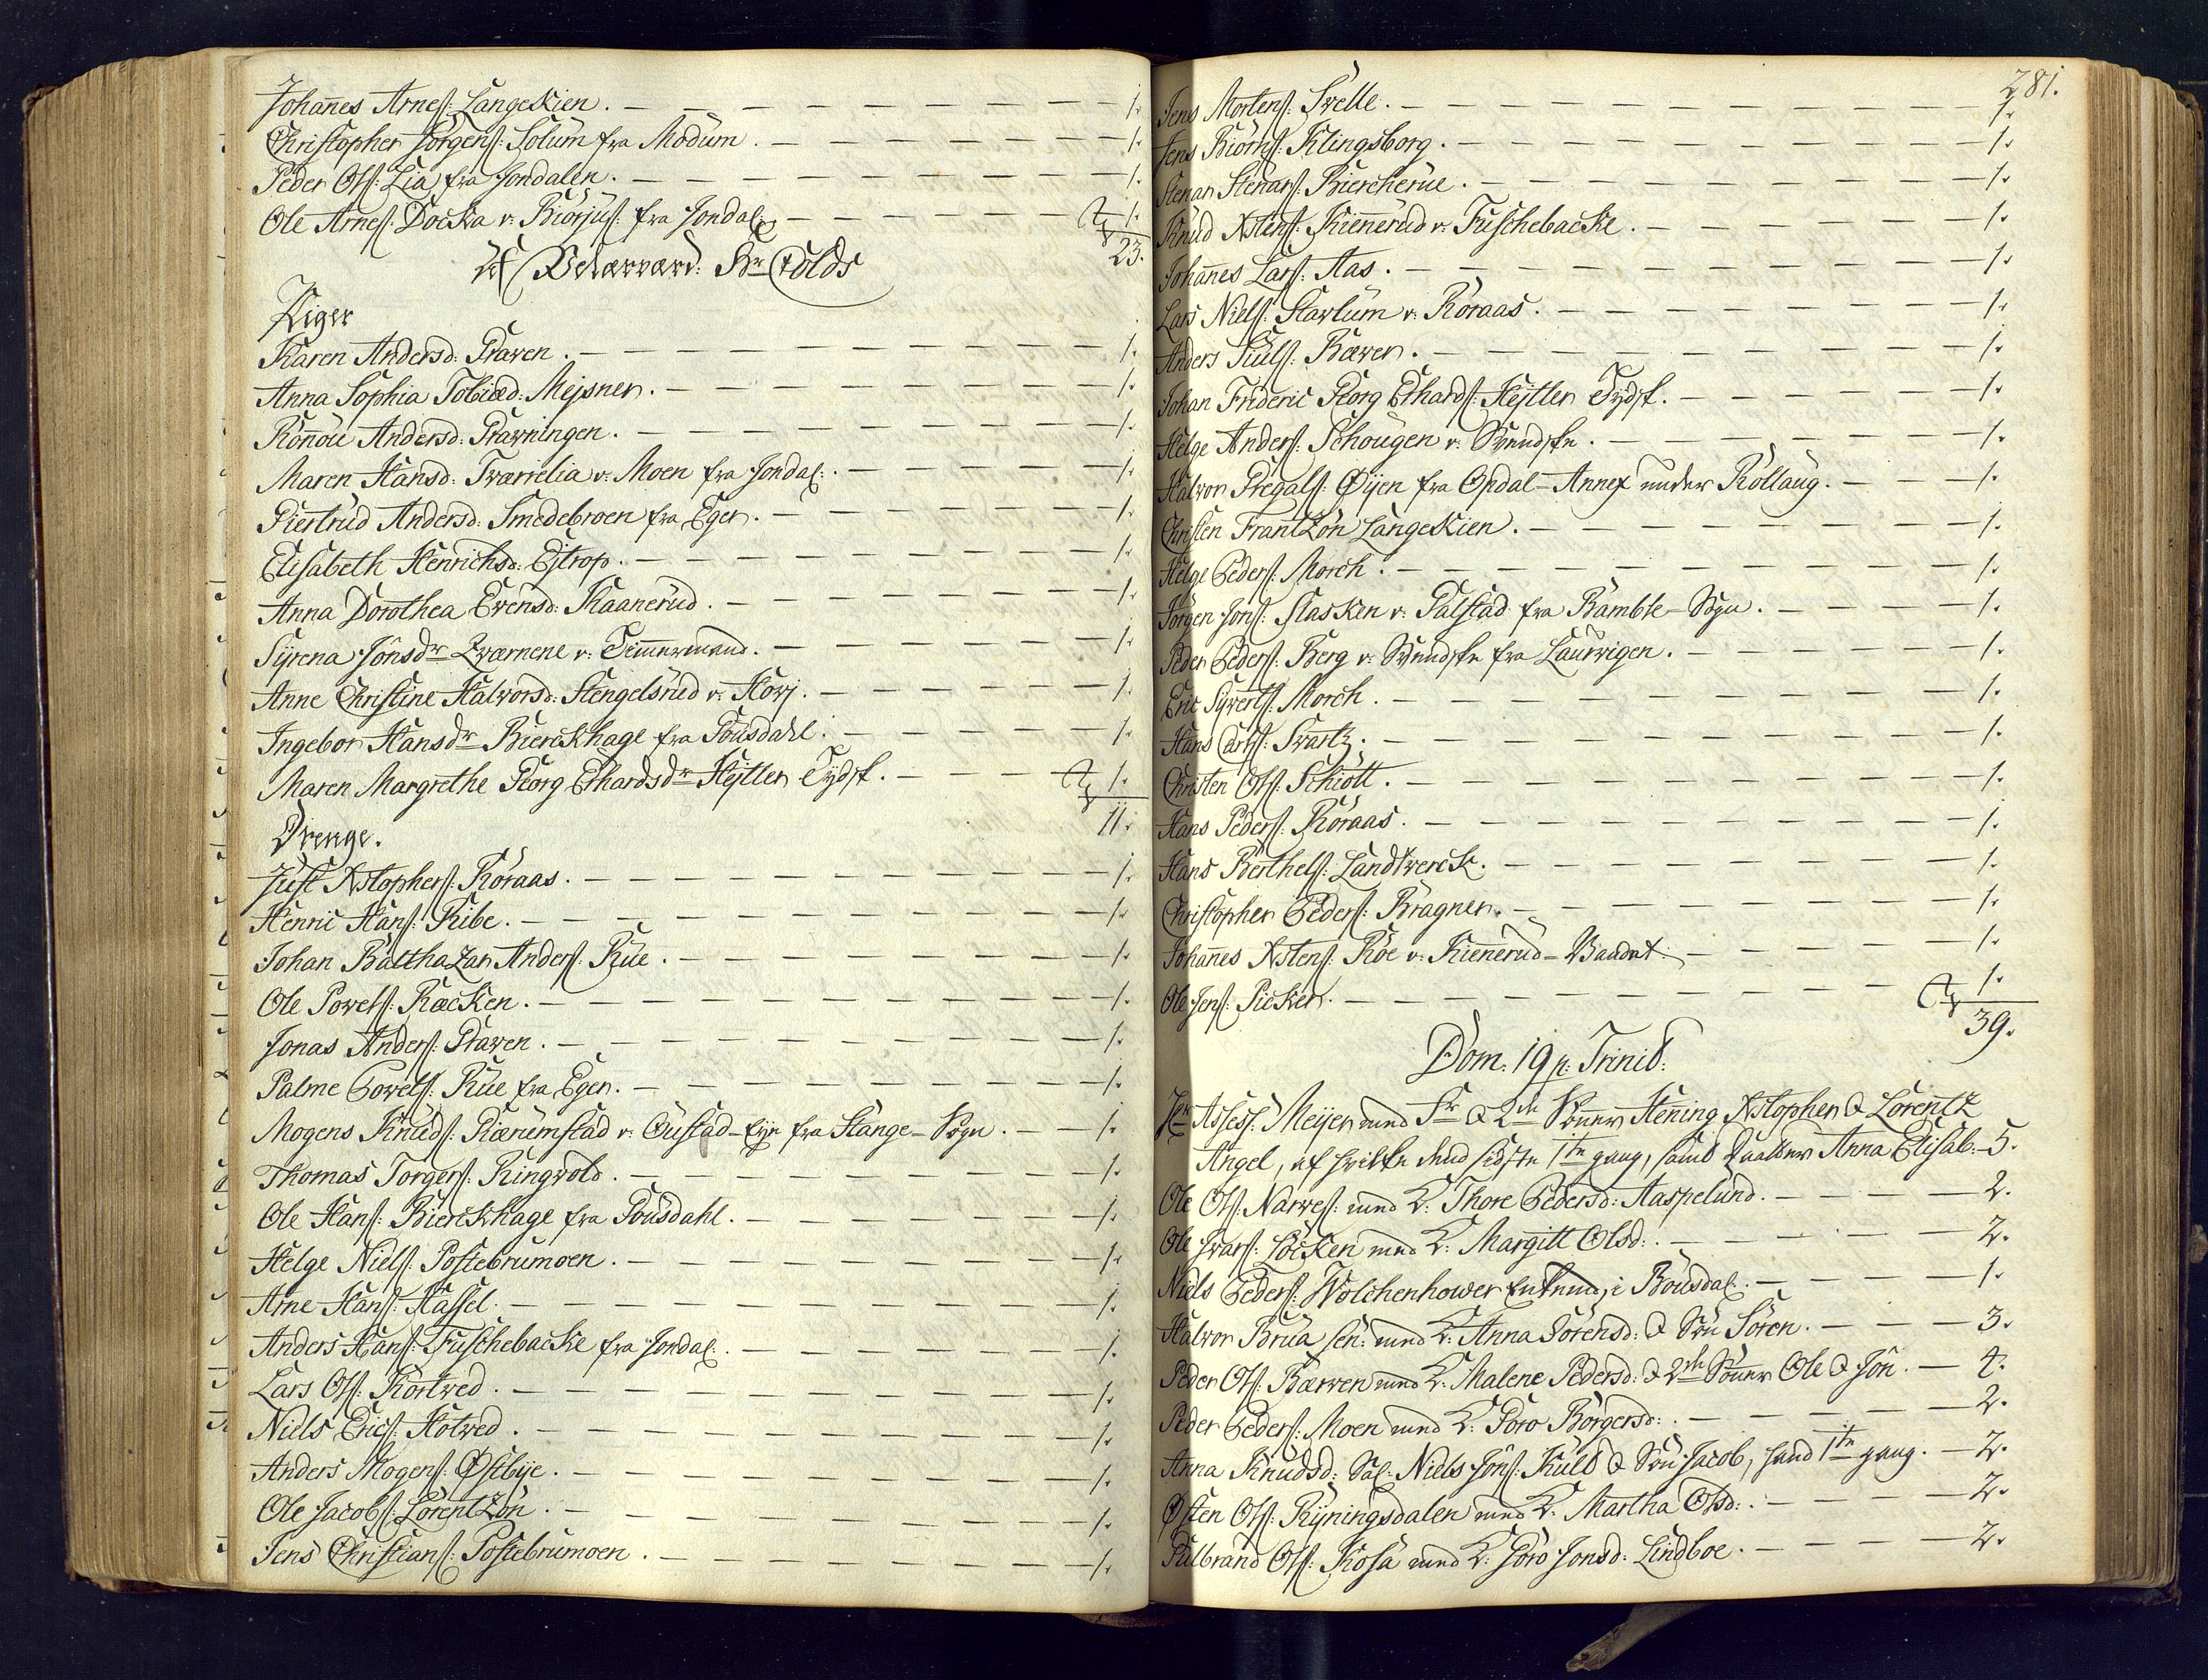 Johañes Arneſ: Langeskien. — 1.
Christopher Jörgenſ: Solum fra Modum. — 1.
Peder Olſ: Lia fra Jondalen. — 1.
Ole Arneſ: Docka v. Biörjuſ: fra Jondal: — 1.
23.
Af Velærværd: Hr Colds
Piger
Karen Andersd: Graven. — 1.
Anna Sophia Tobiæd: Mejsner. — 1.
Rönöu Andersd: Gravningen. — 1.
Maren Hansd: Tværrelia v. Moen fra Jondal: — 1.
Giertrud Andersd: Smedebroen fra Eger. — 1.
Elisabeth Henrichsd: Ejtrop. — 1.
Anna Dorothea Evensd: Kaanerud. — 1.
Syrena Jönsdr Qværnene v. Timmermand. — 1.
Anne Christine Halvorsd: Stengelsrud v. Hövj. — 1.
Ingebor Hansdr Bierckhage fra Göusdahl. — 1.
Maren Margrethe Georg Ethardsdr Hejtler Tydsk. — 1.
11.
Drenge.
Just Xstopherſ: Röraas. — 1.
Henric Hanſ: Ribe. — 1.
Johan Balthazar Anderſ: Rüe. — 1.
Ole Povelſ: Racken. — 1.
Jonas Anderſ: Graven. — 1.
Palme Povelſ: Rüe fra Eger. — 1.
Mogens Knudſ: Kierumstad v. Gustad-Eje fra Stange-Sogn. — 1.
Thomas Torgerſ: Ringvold. — 1.
Ole Hanſ: Bierckhage fra Göusdahl. — 1.
Helge Nielſ: Gostebrumoen. — 1.
Arne Hanſ: Hassel. — 1.
Anders Hanſ: Fuschebacke fra Jondal: — 1.
Lars Olſ: Kortved. — 1.
Niels Ericſ: Hotved. — 1.
Anders Mogenſ: Østbye. — 1.
Ole Jacobſ: Lorentzön. — 1.
Jens Christianſ: Gostebrumoen. — 1.
281.
Jens Mortenſ: Svelle. — 1.
Jens Biörnſ: Klingsborg. — 1.
Stenar Stenarſ: Biercherue. — 1.
Knud Xstenſ: Kieñerud v. Fuschebacke. — 1.
Johañes Larſ: Aas. — 1.
Lars Nielſ: Starlum v. Röraas. — 1.
Anders Julſ: Bæver. — 1.
Johan Frideric Georg Ethardſ: Hejtler Tydsk. — 1.
Helge Anderſ: Schougen v. Svendske. — 1.
Halvor Gregalſ: Øijen fra Opdal-Annex under Rollaug. — 1.
Christen Frantzön Langeskien. — 1.
Helge Pederſ: Morch. — 1.
Jörgen Jonſ: Flasken v. Galstad fra Bamble-Sogn. — 1.
Peder Pederſ: Berg v. Svendske fra Laurvigen. — 1.
Eric Syvertſ: Morch. — 1.
Hans Carlſ: Svartz. — 1.
Christen Olſ: Schiött. — 1.
Hans Pederſ: Röraas. — 1.
Hans Berthelſ: Landtverck. — 1.
Christopher Pederſ: Bragner. — 1.
Johañes Xstenſ: Röe v. Kieñerud-Vandet. — 1.
Ole Jenſ: Picker. — 1.
39.
Dom. 19 p: Trinit:
Hr Assess: Meijer med Fr & 2de Sönner Hening Xstopher & Lorentz
Angel, af hvilke dend sidste 1te gang, samt Daatter Anna Elisab: — 5.
Ole Olſ: Narveſ: med K: Thore Pedersd: Aaspelund. — 2.
Ole Ivarſ: Löcken med K: Margitt Olsd: — 2.
Niels Pederſ: Wolchenhower Enkemd i Böusdal: — 1.
Halvor Brua sen: med K: Anna Sörensd: & Sön Sören. — 3.
Peder Olſ: Bærven med K: Malene Pedersd: & 2de Sönner Ole & Jön. — 4.
Peder Pederſ: Moen med K: Goro Börgersd: — 2.
Anna Knudsd: Sal: Niels Jönſ: Kuld & Sön Jacob, hand 1te gang. — 2.
Østen Olſ: Ryningsdalen med K: Martha Olsd: — 2.
Gulbrand Olſ: Kosa med K: Goro Jonsd: Lindboe. — 2.